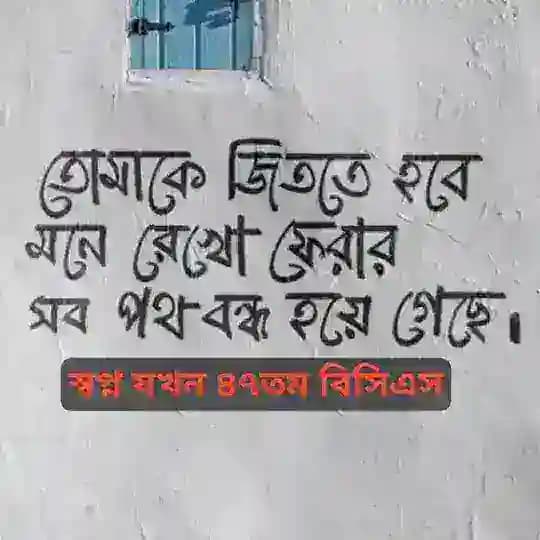 তোমাকে জিততে হবে
মনে রেখো ফেরার
সব পথ বন্ধ হয়ে গেছে।
স্বপ্ন যখন ৪৭তম বিসিএস